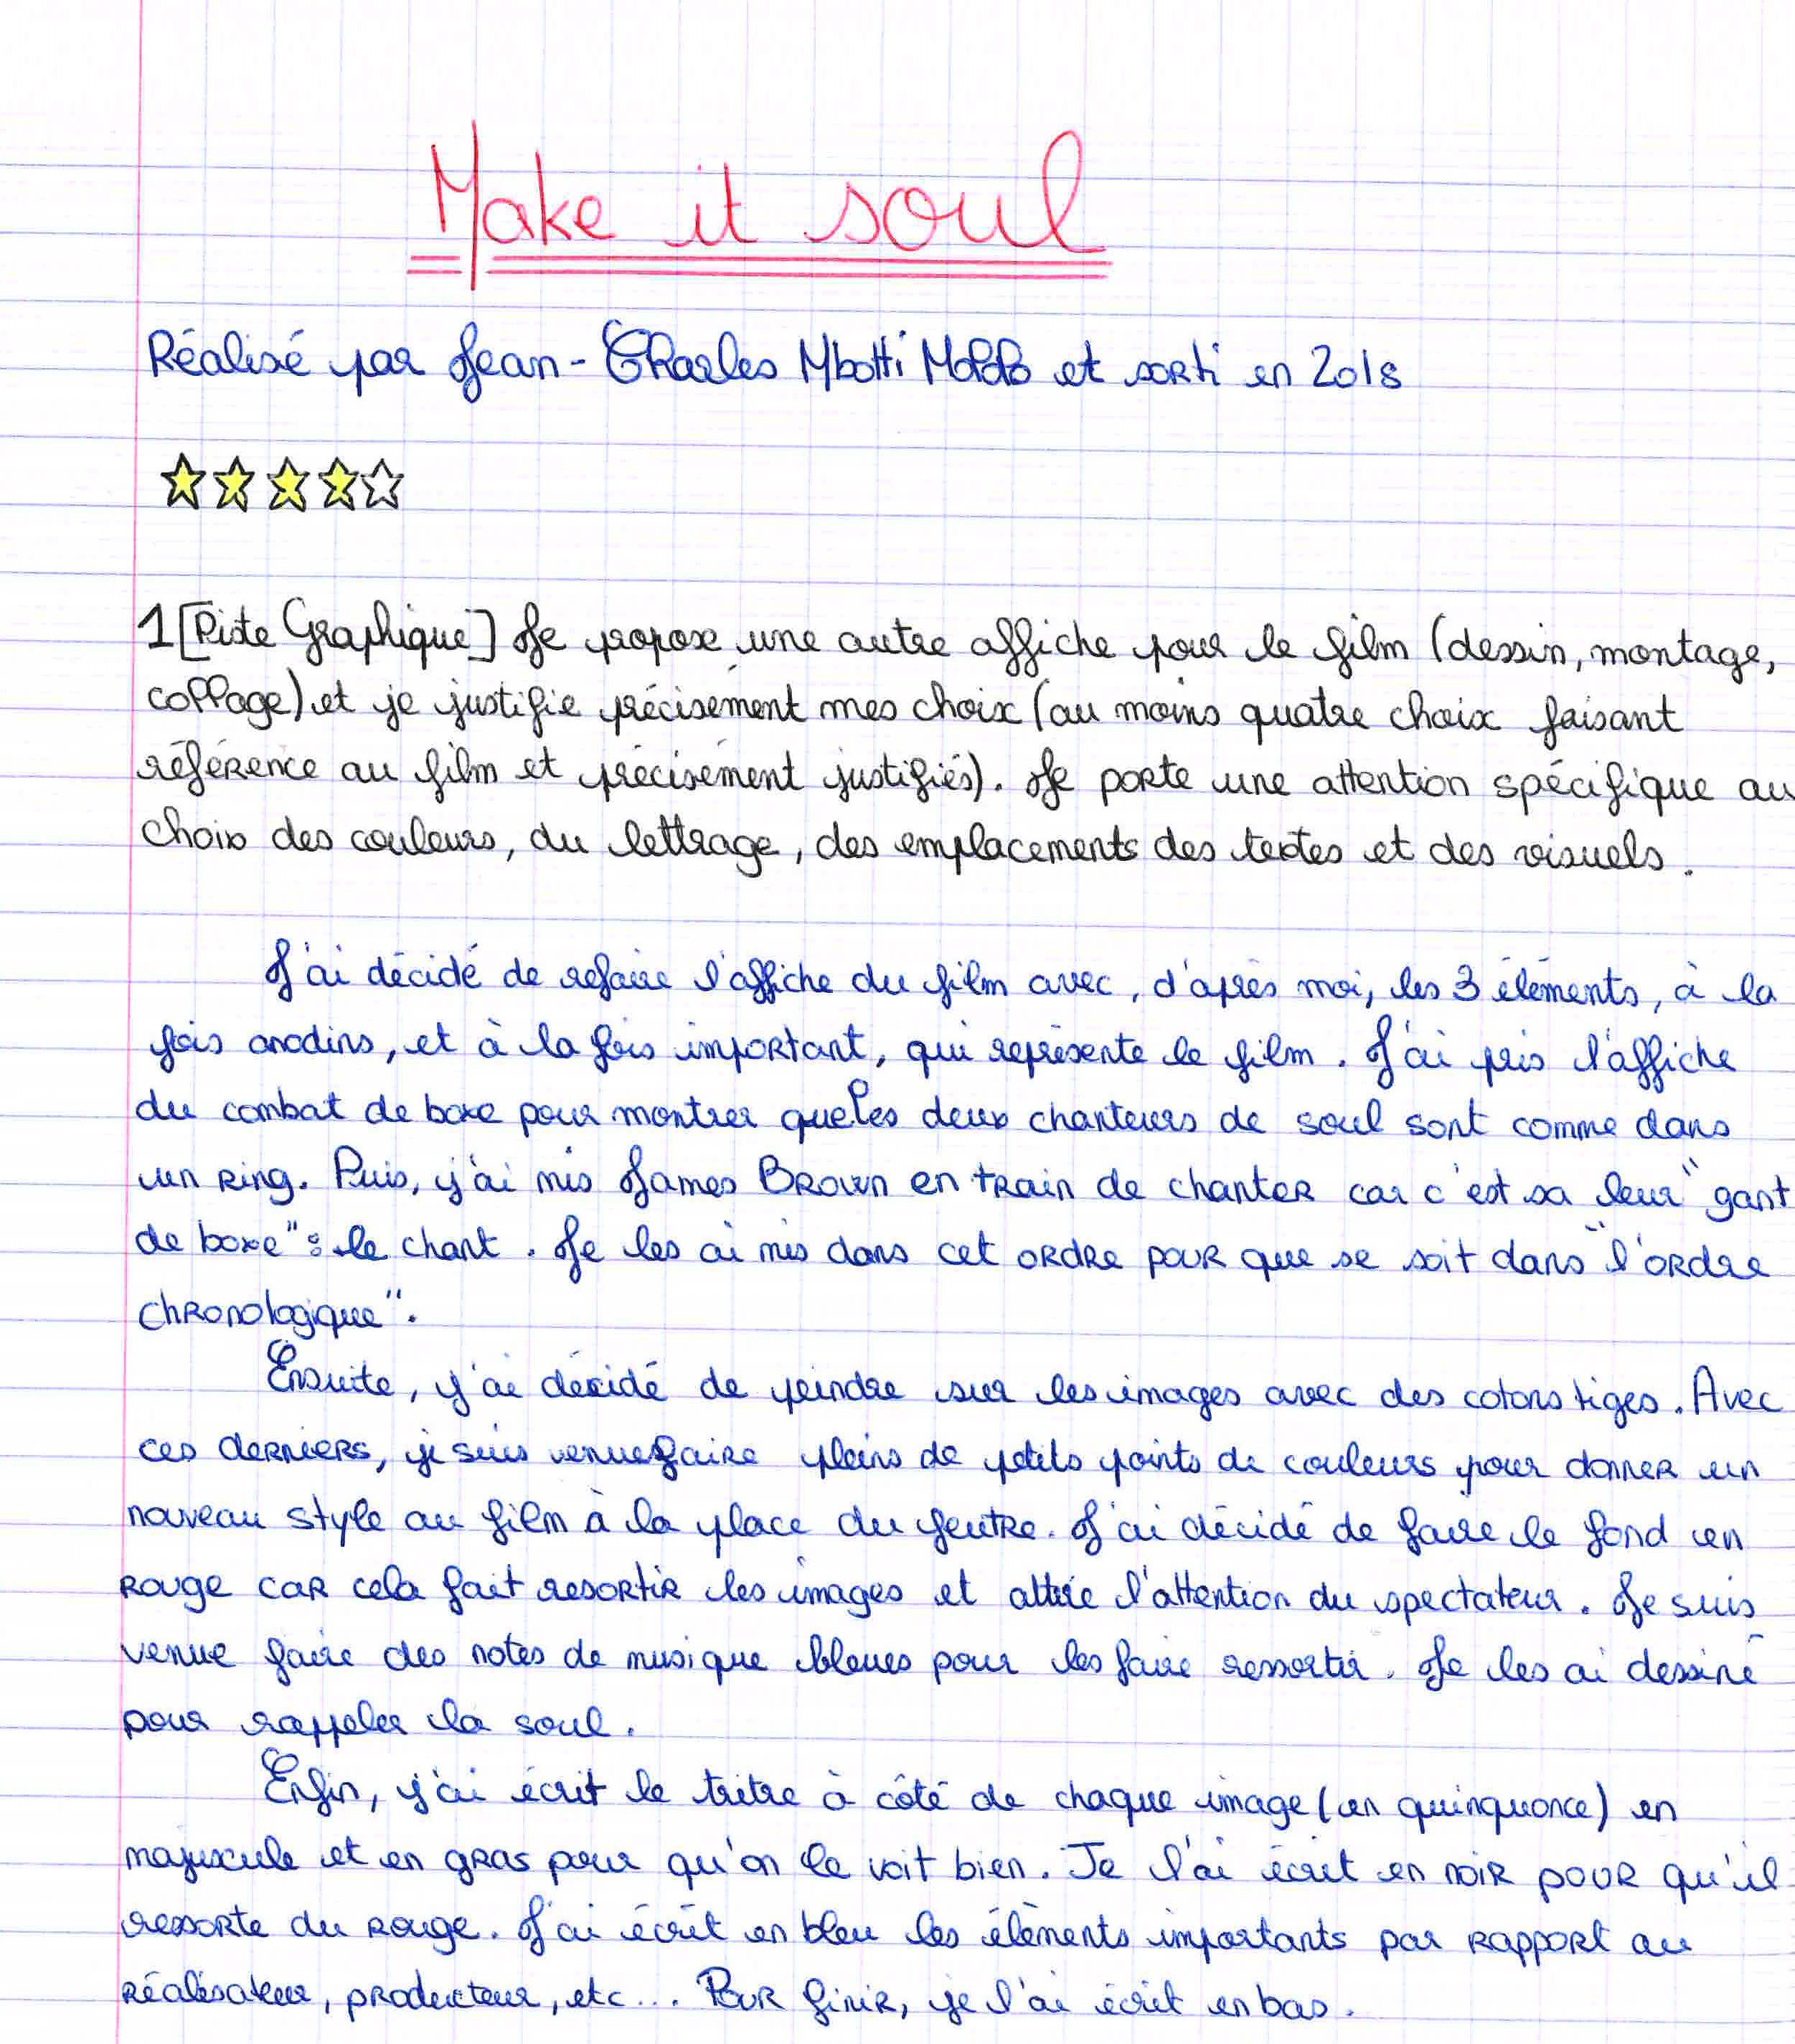 Make it soul
Réalisé par Jean-Charles Mbotti Malolo et sorti en 2018
1 [Piste Graphique] Je propose une autre affiche pour le film (dessin, montage,
collage) et je justifie précisément mes choix (au moins quatre choix faisant
référence au film et précisément justifiés). Je porte une attention spécifique au
choix des couleurs, du lettrage, des emplacements des textes et des visuels.
J'ai décidé de refaire l'affiche du film avec, d'après moi, les 3 éléments, à la
fois anodins, et à la fois important, qui représente le film. J'ai pris l'affiche
du combat de boxe pour montrer que les deux chanteurs de soul sont comme dans
un ring. Puis, j'ai mis James Brown en train de chanter car c'est sa leur "gant
de boxe" : le chant. Je les ai mis dans cet ordre pour que se soit dans "l'ordre
chronologique".
Ensuite, j'ai décidé de peindre sur les images avec des cotons tiges. Avec
ces derniers, je suis venue faire pleins de petits points de couleurs pour donner un
nouveau style au film à la place du feutre. J'ai décidé de faire le fond en
rouge car cela fait resortir les images et attire l'attention du spectateur. Je suis
venue faire des notes de musique bleues pour les faire ressortir. Je les ai dessiné
pour rappeler la soul.
Enfin, j'ai écrit le tritre à côté de chaque image (en quinquonce) en
majuscule et en gras pour qu'on le voit bien. Je l'ai écrit en noir pour qu'il
ressorte du rouge. J'ai écrit en bleu les éléments importants par rapport au
réalisateur, producteur, etc... Pour finir, je l'ai écrit en bas.